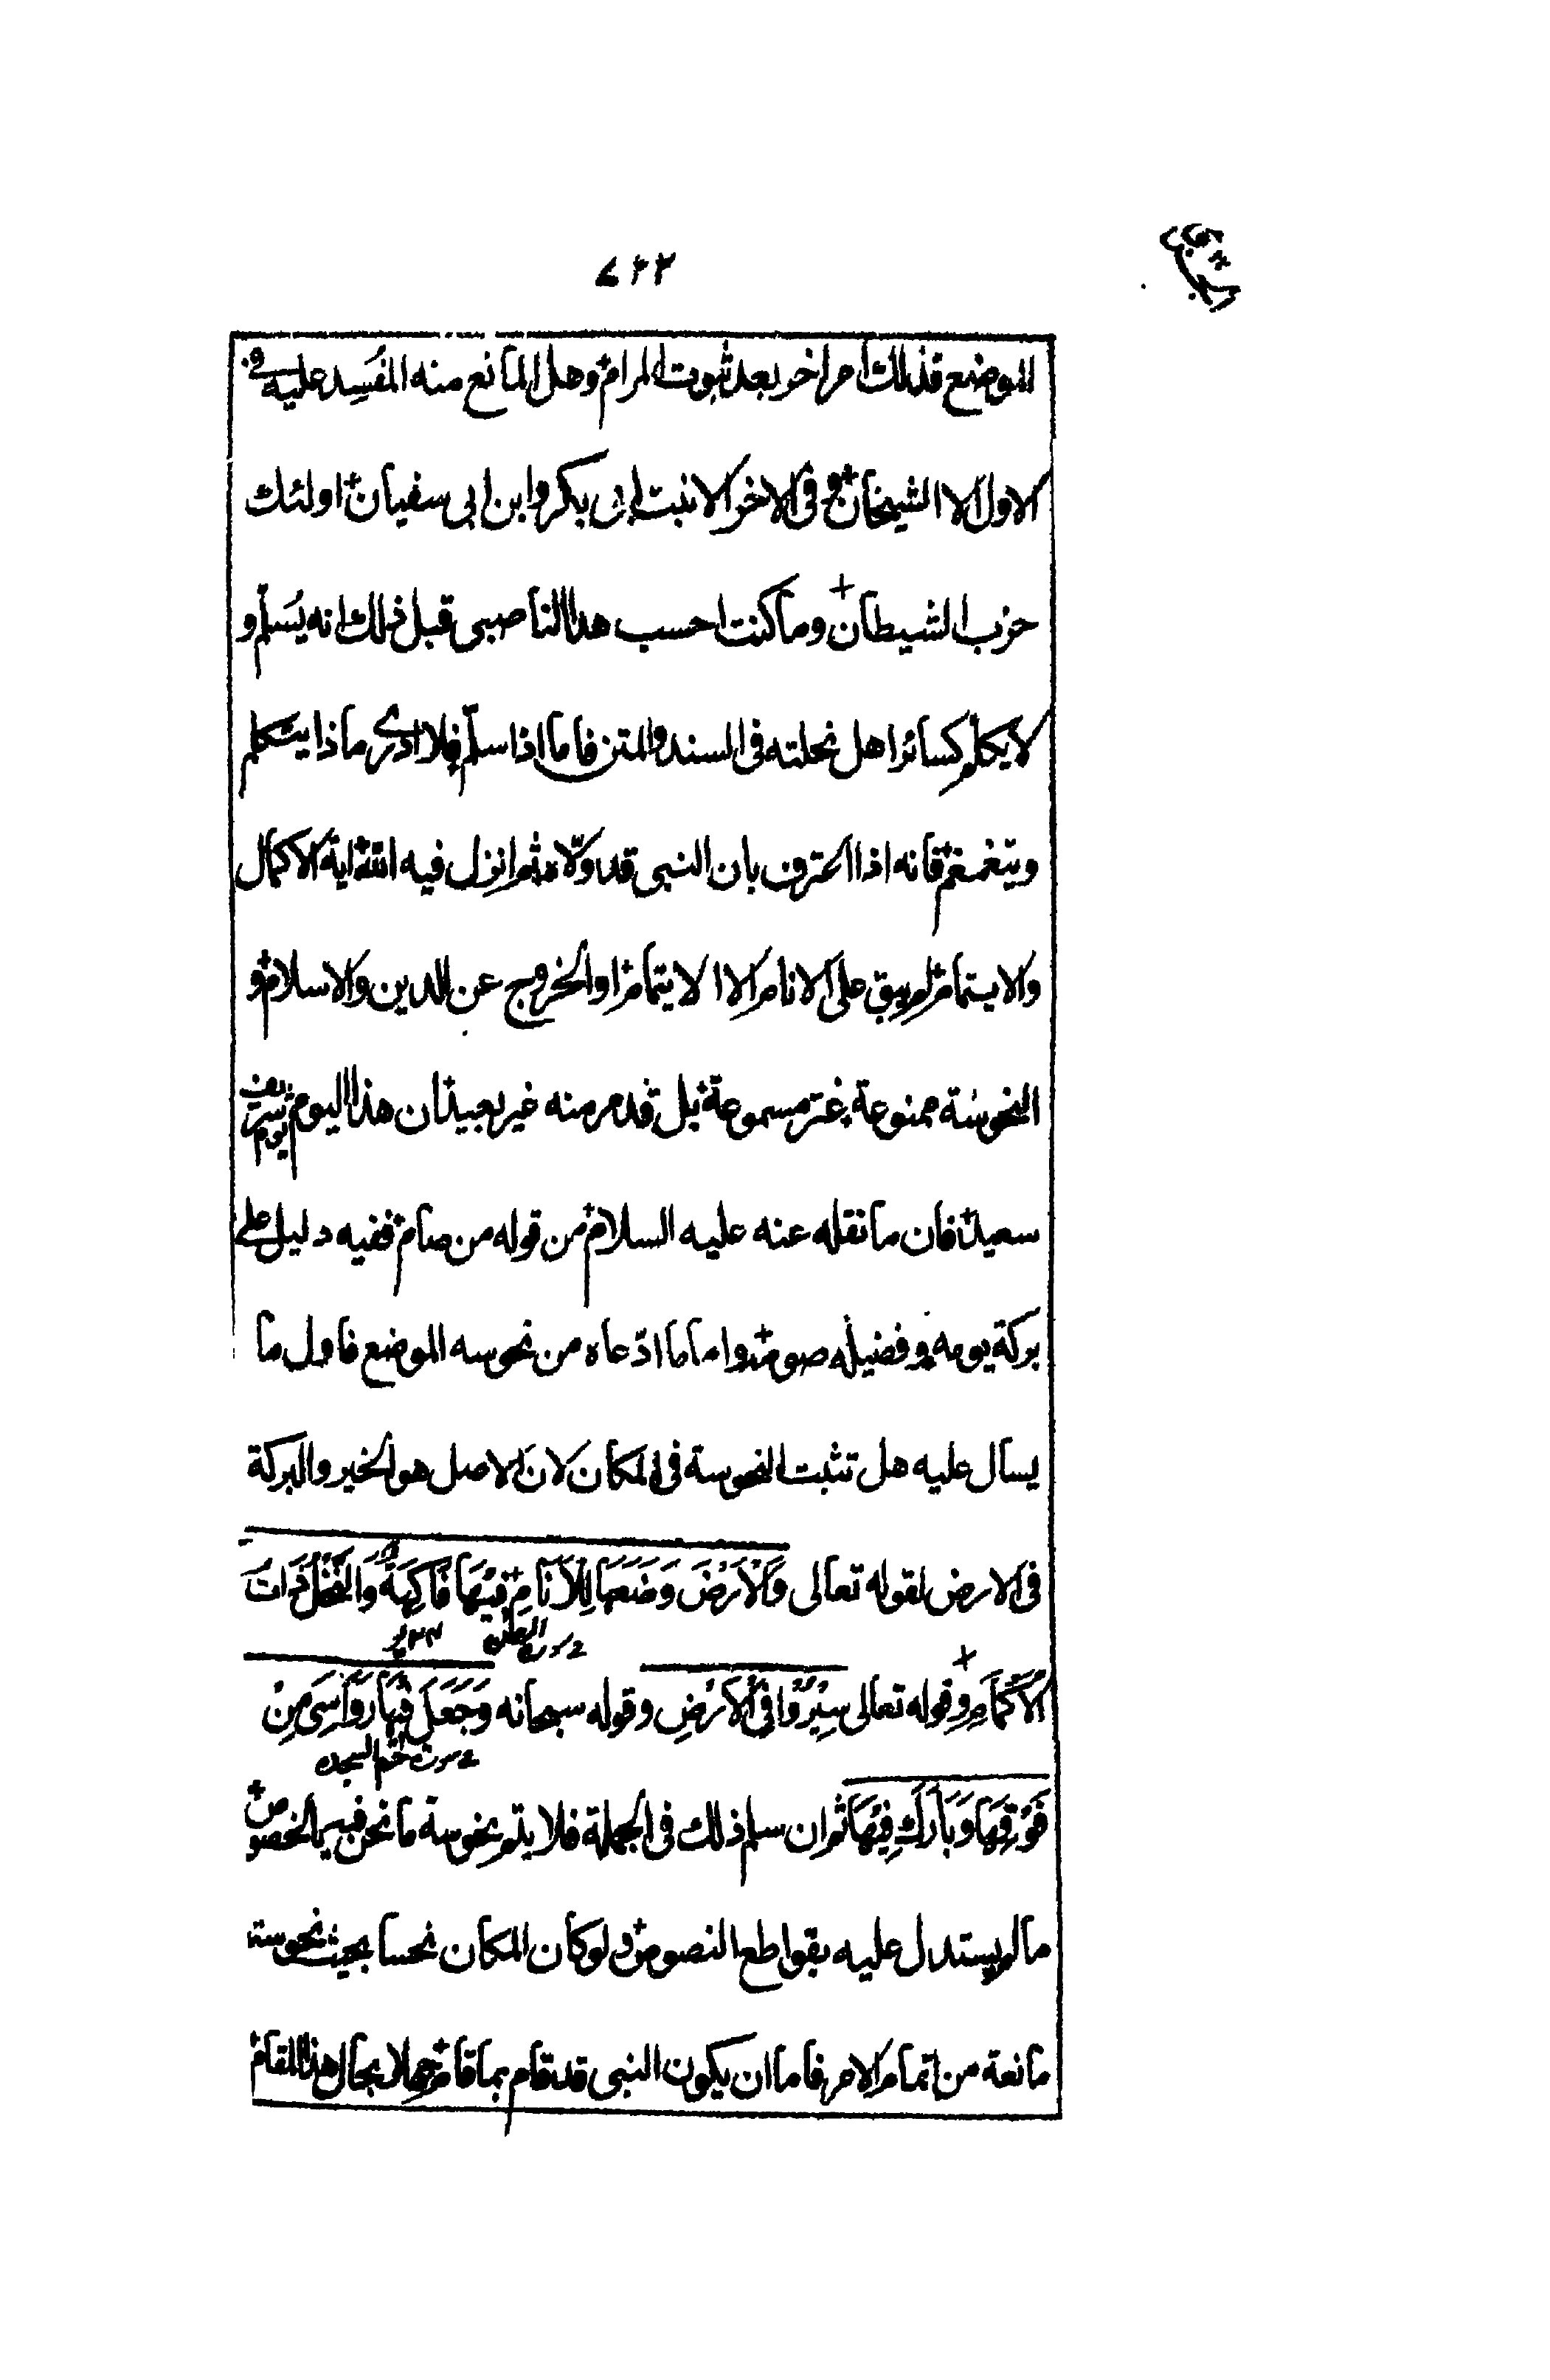 ٧٢٢
الموضع فذلك امر اخر بعد ثبوت المرام وهل المانع منه المفسد عليه في
الاول الا الشيخان وفي الاخر الا بنت ابي بكر وابن ابي سفيان اولئك
حزب الشيطان وما كنت احسب هذا الناصبي قبل ذلك انه يسلّم و
لا يكلم كسائر اهل نحلته في السند والمتن فاما اذا سلّم فلا ادري ماذا يتكلم
ويتغمغم فانه اذا اعترف بان النبي قد ولّاه ثم انزل فيه الله اية الاكمال
والاستمام لم يبق على الانام الا الايتمام او الخروج عن الدين والاسلام و
النحوسة ممنوعة غير مسموعة بل قد مر منه غير بعيد ان هذا اليوم يوم شريف
سعيد فان ما نقله عنه عليه السلام من قوله من صام ففيه دليل على
بركة يومه وفضيله صومه واما ما ادّعاه من نحوسه الموضع فاول ما
يسال عليه هل تثبت النحوسة في المكان لان الاصل هو الخير والبركة
في الارض لقوله تعالى وَالْاَرْضَ وَضَعَهَا لِلْاَنَامِ فِيْهَا فَاكِهَةٌ وَالنَّخْلُ ذَاتُ
سورة الرحمن
الْاَكْمَامِ وقوله تعالى سِيْرُوْا فِي الْاَرْضِ وقوله سبحانه وَجَعَلَ فِيْهَا رَوَاسِيَ مِنْ
سورة حم السجده
فَوْقِهَا وَبَارَكَ فِيْهَا ثم ان سلم ذلك في الجملة فلا يتم نحوسة ما نحن فيه بالخصوص
ما لم يستدل عليه بقواطع النصوص ولو كان المكان نحسا بحيث نحوسته
مانعة من اتمام الامر فاما ان يكون النبي قد قام بما قام جهلا بحال هذا المقام